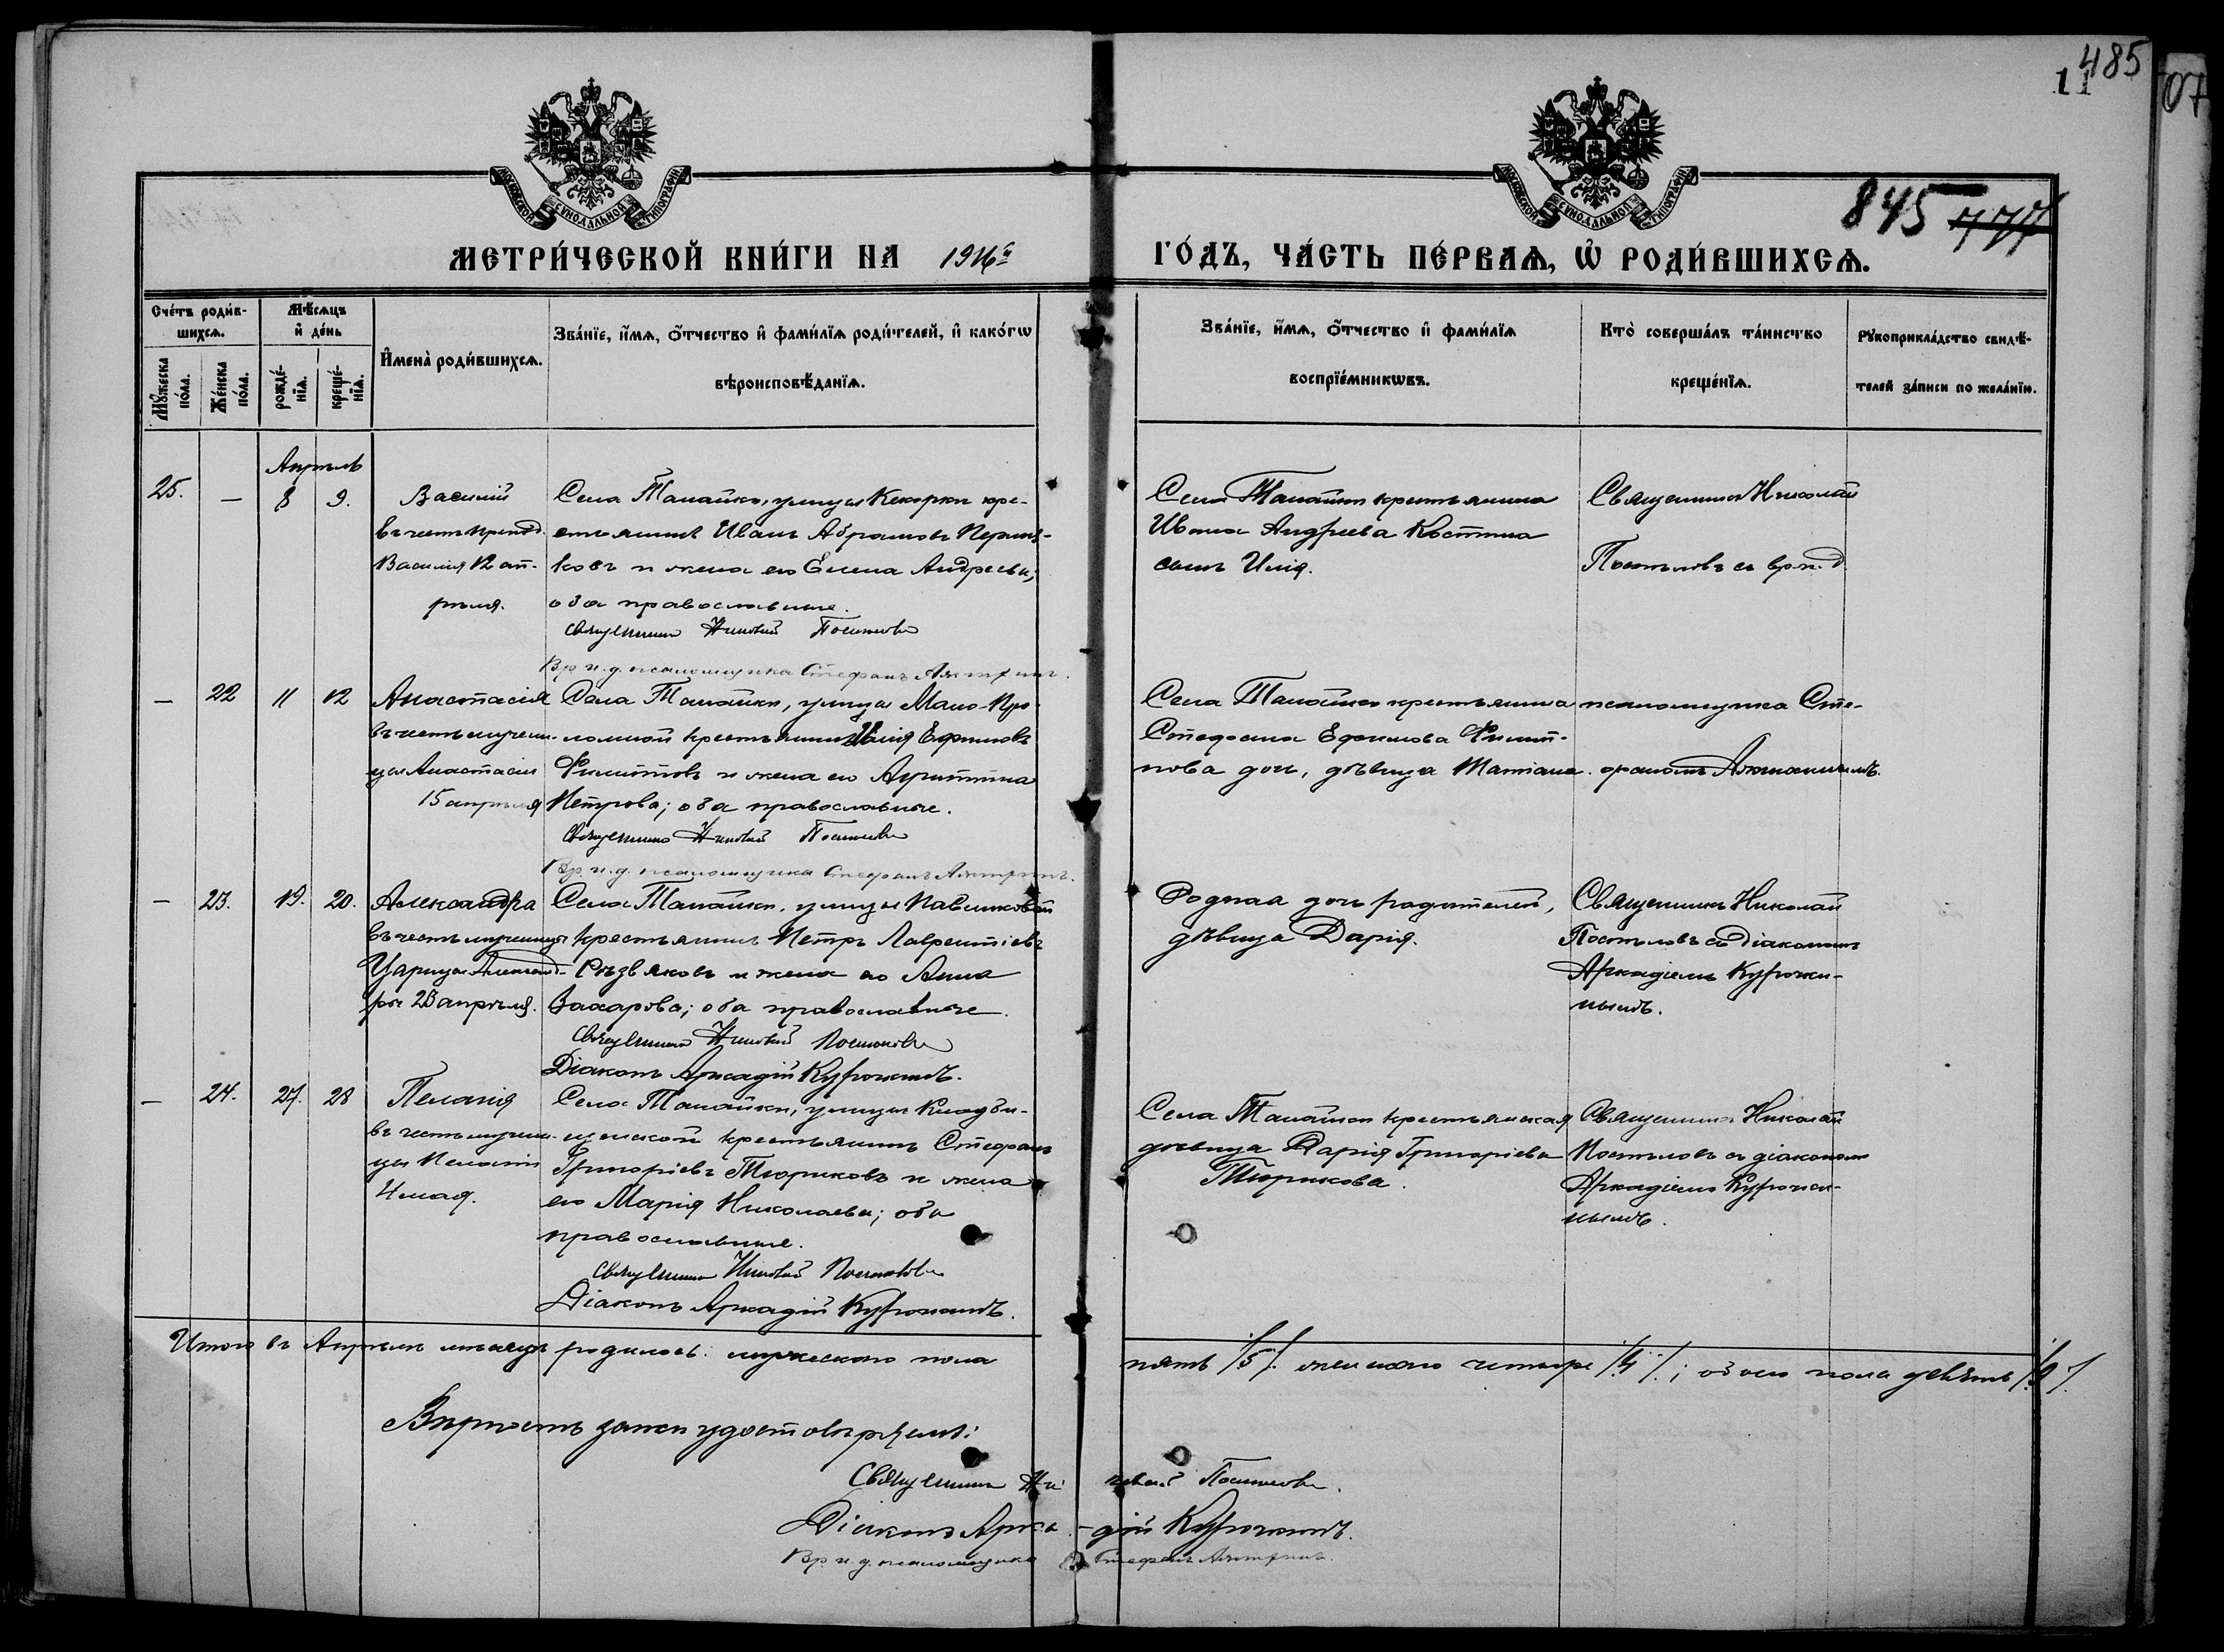 485
11
07
МОСКОВСКОЙ СѴНОДАЛЬНОЙ ТИПОГРАФІИ
МОСКОВСКОЙ СѴНОДАЛЬНОЙ ТИПОГРАФІИ
845 777
МЕТРИ́ЧЕСКОЙ КНИ́ГИ НА 1916й ГО́ДЪ, ЧА́СТЬ ПЕ́РВАѦ, Ѡ҆ РОДИ́ВШИХСѦ.
Сче́тъ роди́в-
шихсѧ.
Мꙋ́жеска
по́ла.
Же́нска
по́ла.
Мѣ́сѧцъ
и҆ де́нь
рожде́-
нїѧ.
креще́-
нїѧ.
И҆мена̀ роди́вшихсѧ.
Зва́нїе, и҆́мѧ, ѻ҆́тчество и҆ фами́лїѧ роди́телей, и҆ како́гѡ
вѣроисповѣ́данїѧ.
Зва́нїе, и҆́мѧ, ѻ҆́тчество и҆ фами́лїѧ
воспрїе́мникѡвъ.
Кто̀ соверша́лъ та́инство
креще́нїѧ.
Рꙋкоприкла́дство свидѣ́-
телей за́писи по жела́нїю.
Апрѣль
25. — 8 9.
Василій
въ честь преподоб.
Василія 12 ап-
рѣля.
Села Танайки, улицы Кекорки кре-
стьянинъ Иванъ Абрамовъ
ковъ и жена его Елена Андреева;
оба православные.
Священникъ Николай Постниковъ
Вр. и. д. псаломщика Стефанъ
Села Танайки крестьянина
Ивана Андреева Костина
сынъ Илія.
Священникъ Николай
съ вр. и. д.
— 22 11 12
Анастасія
въ честь мучени-
цы Анастасіи
15 апрѣля
Села Танайки, улицы Мало-Про-
ломной крестьянинъ Илія Ефимовъ
Филиповъ и жена его Агриппина
Петрова; оба православные.
Священникъ Николай
Вр. и. д. псаломщика Стефанъ
Села Танайки крестьянина
Ефимова Филип-
пова дочь, дѣвица Татіана.
псаломщика Сте-
фаномъ
— 23. 19. 20.
Александра
въ честь мученицы
Царицы Александ-
ры 23 апрѣля.
Села Танайки, улицы Павликовой
крестьянинъ Петръ Лаврентіевъ
Рѣзвяковъ и жена его Анна
Захарова; оба православные.
Священникъ Николай
Діаконъ Аркадій Курочкинъ.
Родная дочь родителей,
дѣвица Дарія.
Священникъ Николай
съ діакономъ
Аркадіемъ Курочки-
нымъ.
— 24. 27. 28
Пелагія
въ честь мучени-
цы Пелагіи
4 мая.
Села Танайки, улицы Кладби-
щенской крестьянинъ Стефанъ
Григоріевъ Тюриковъ и жена
его Марія Николаева; оба
православные.
Священникъ Николай
Діаконъ Аркадій Курочкинъ.
Села Танайки крестьянская
дѣвица Дарія Григоріева
Тюрикова.
Священникъ Николай
съ діакономъ
Аркадіемъ Курочки-
нымъ.
Итого въ Апрѣлѣ мѣсяцѣ родилось: мужескаго пола пять /5/. женскаго четыре /4/.; обоего пола девять /9/.
Вѣрность записи удостовѣряемъ:
Священникъ Николай
Діаконъ Аркадій Курочкинъ.
Вр. и. д. псаломщика Стефанъ